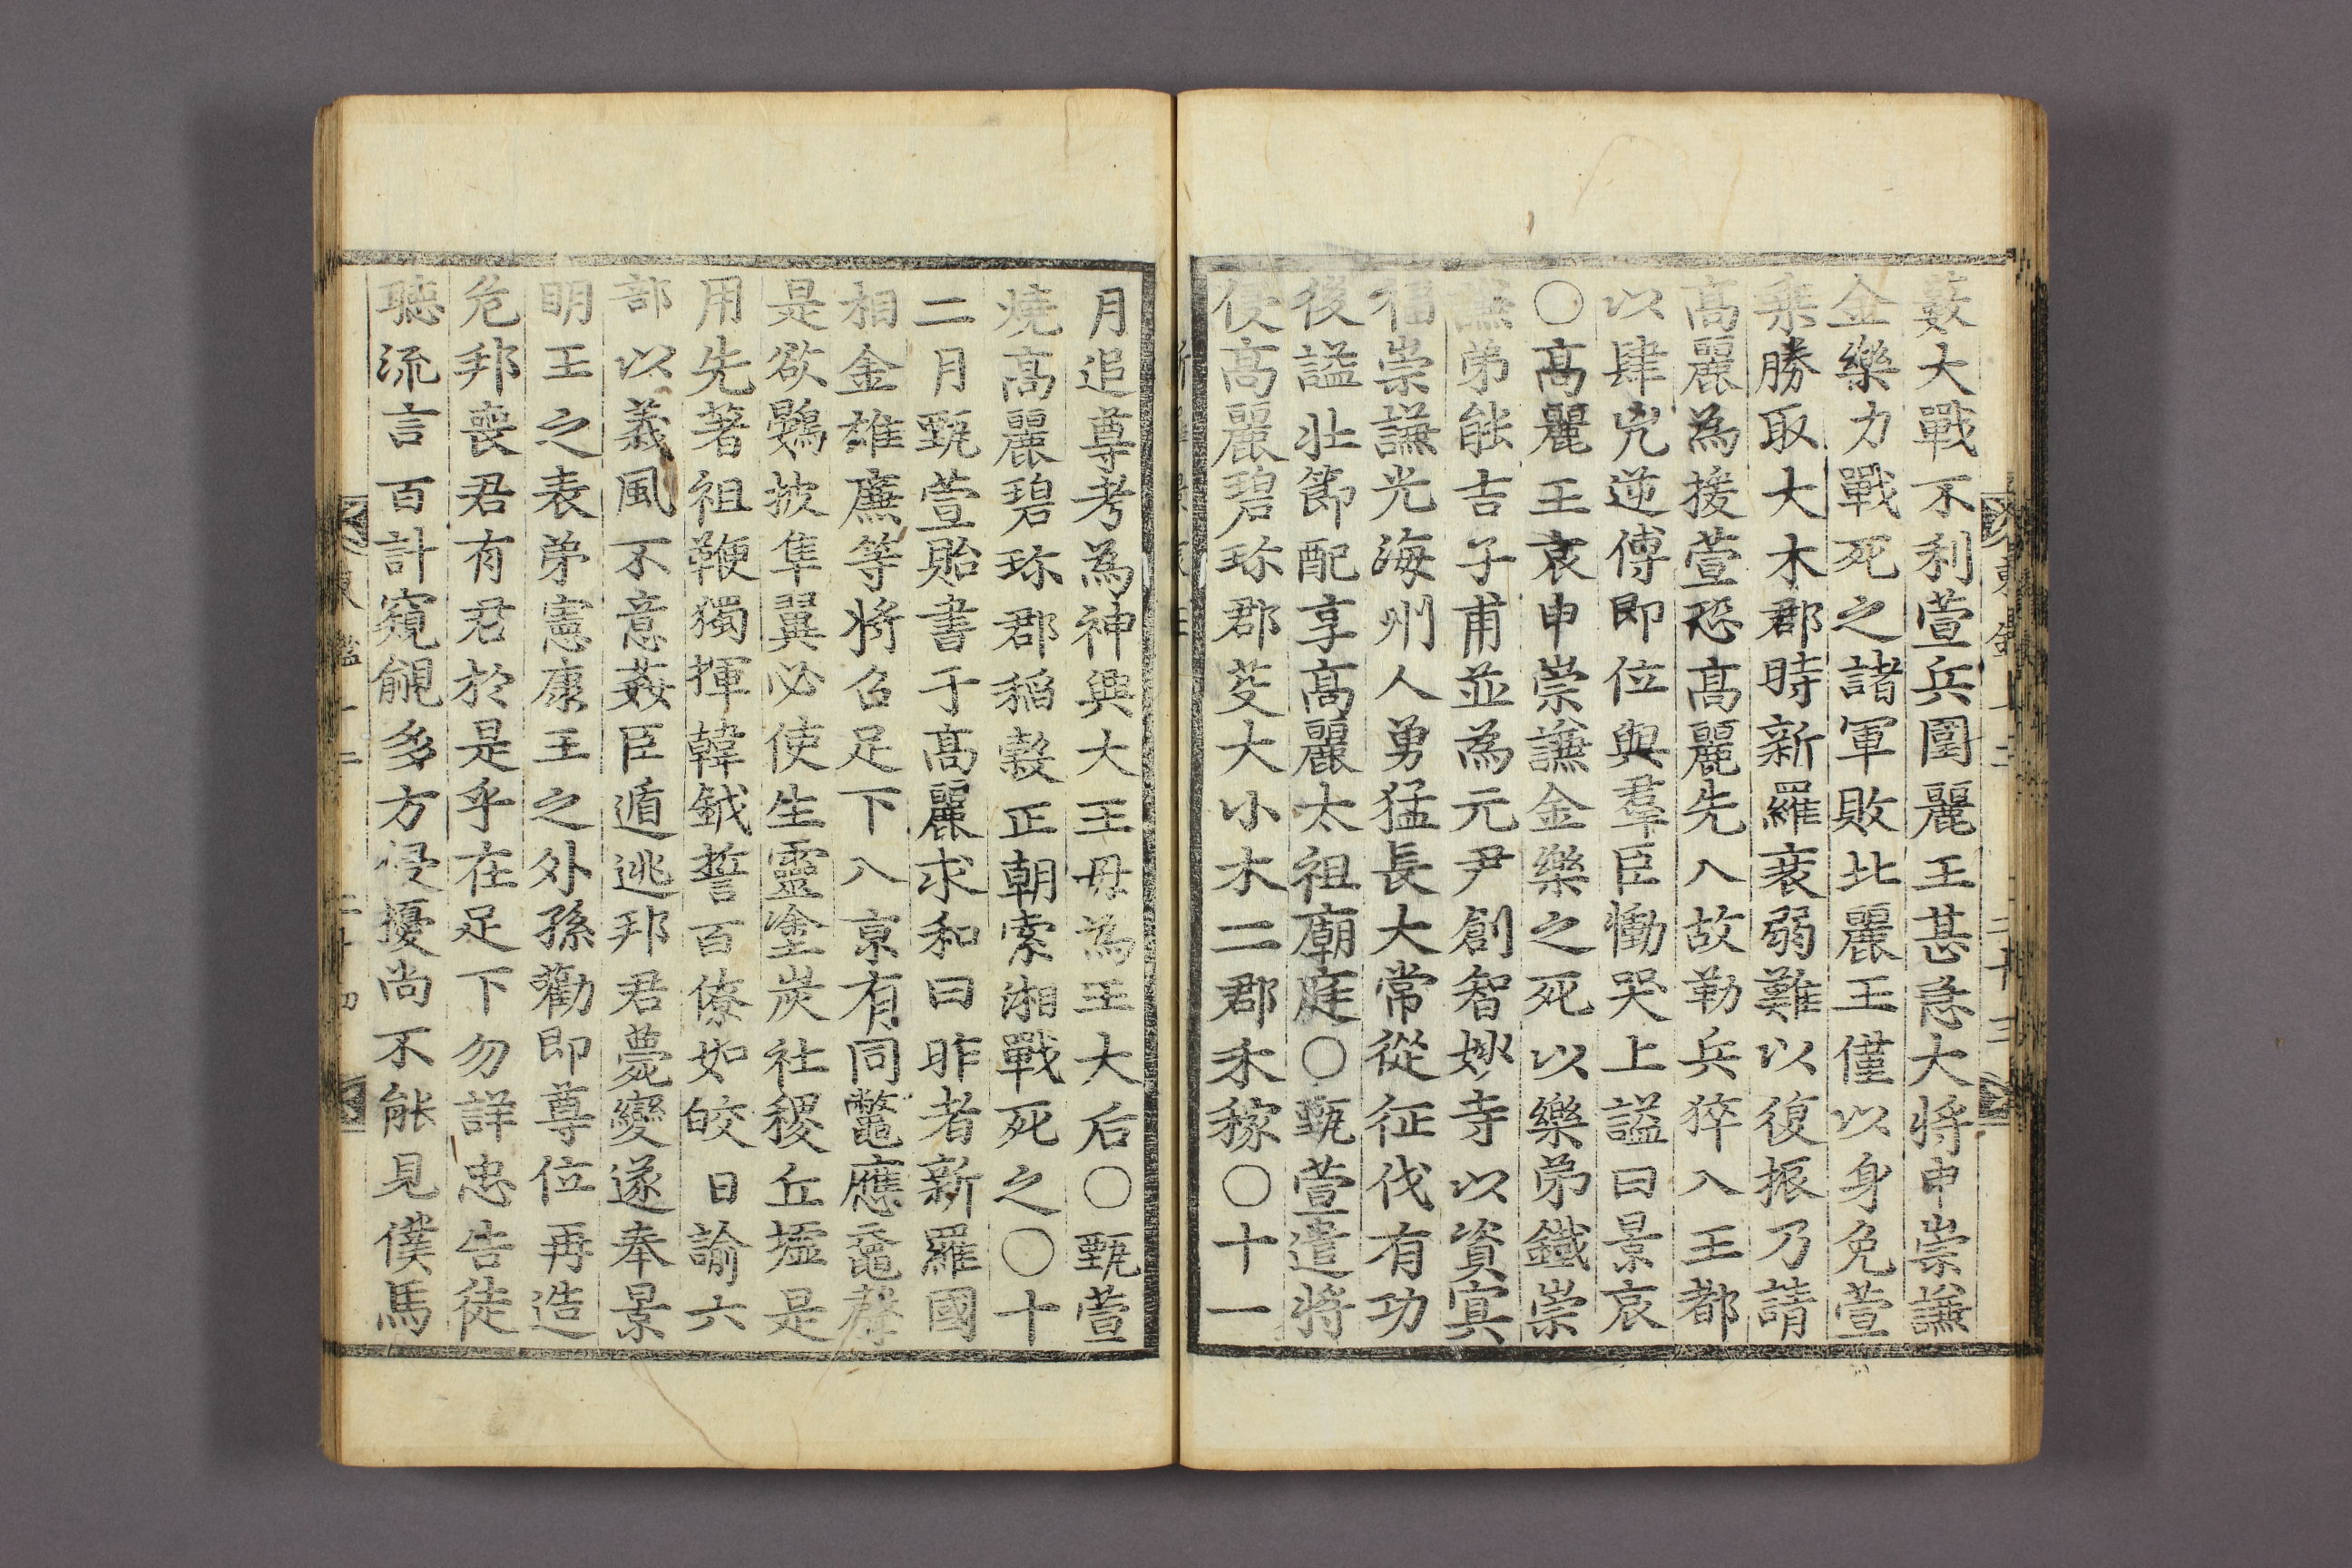 藪大戰不利萱兵圍麗王甚急大將申崇謙
金樂力戰死之諸軍敗北麗王僅以身免萱
乘勝取大木郡時新羅衰弱難以復振乃請
高麗為援萱恐高麗先入故勒兵猝入王都
以肆兇逆傅即位與羣臣慟哭上謚曰景哀
○高麗王哀申崇謙金樂之死以樂弟鐵崇
謙弟能吉子甫並為元尹創智妙寺以資寞
福崇謙光海州人勇猛長大常從征伐有功
後謚壯節配享高麗太祖廟庭○甄萱遣將
侵高麗碧珎郡芟大小木二郡禾稼○十一
月追尊考為神興大王毋為王大后○甄萱
燒高麗碧珎郡稻穀正朝索湘戰死之○十
二月甄萱貽書于高麗求和曰昨者新羅國
相金雄廉等將召足下入京有同鼈應黿聲
是欲鷃披隼翼必使生靈塗炭社稷丘墟是
用先著祖鞭獨揮韓鉞誓百僚如皎日諭六
部以義風不意姦臣遁逃邦君薨變遂奉景
明王之表弟憲康王之外孫勸即尊位再造
危邦喪君有君於是乎在足下勿詳忠告徒
聽流言百計窺覦多方侵擾尚不能見僕馬